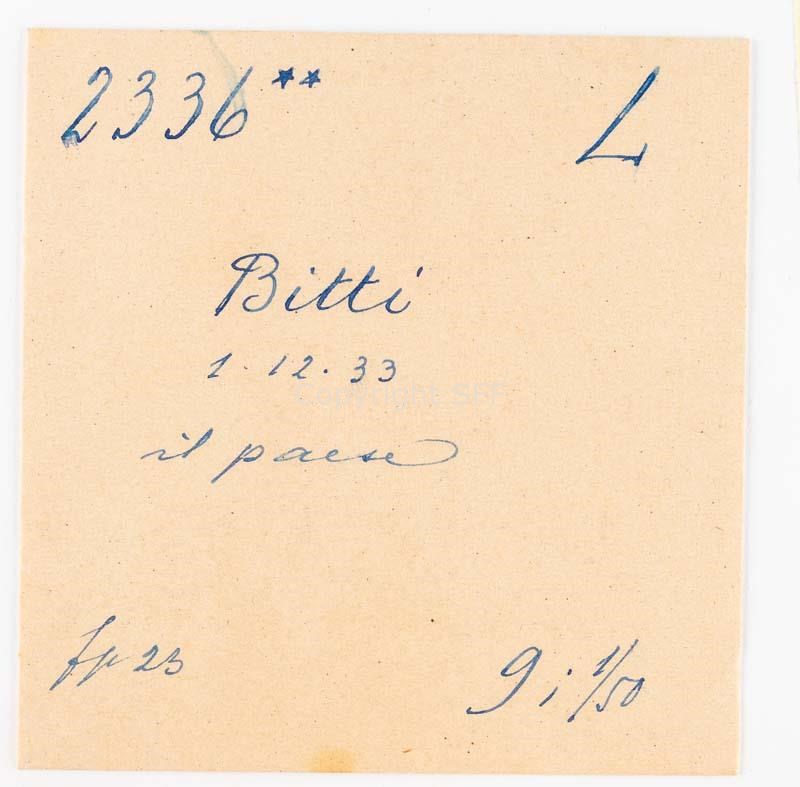 2336** L
Bitti
1.12.33
Copyright SFF
il paese
fp 23
9 i 1/50